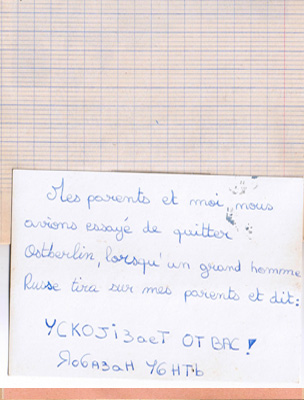 Mes parents et moi, nous
avions essayé de quitter
Ostberlin, lorsqu'un grand homme
Russe tira sur mes parents et dit:
УСКОЈiЗаеТ ОТ ВАС!
ЯобАЗаН УбНТЬ